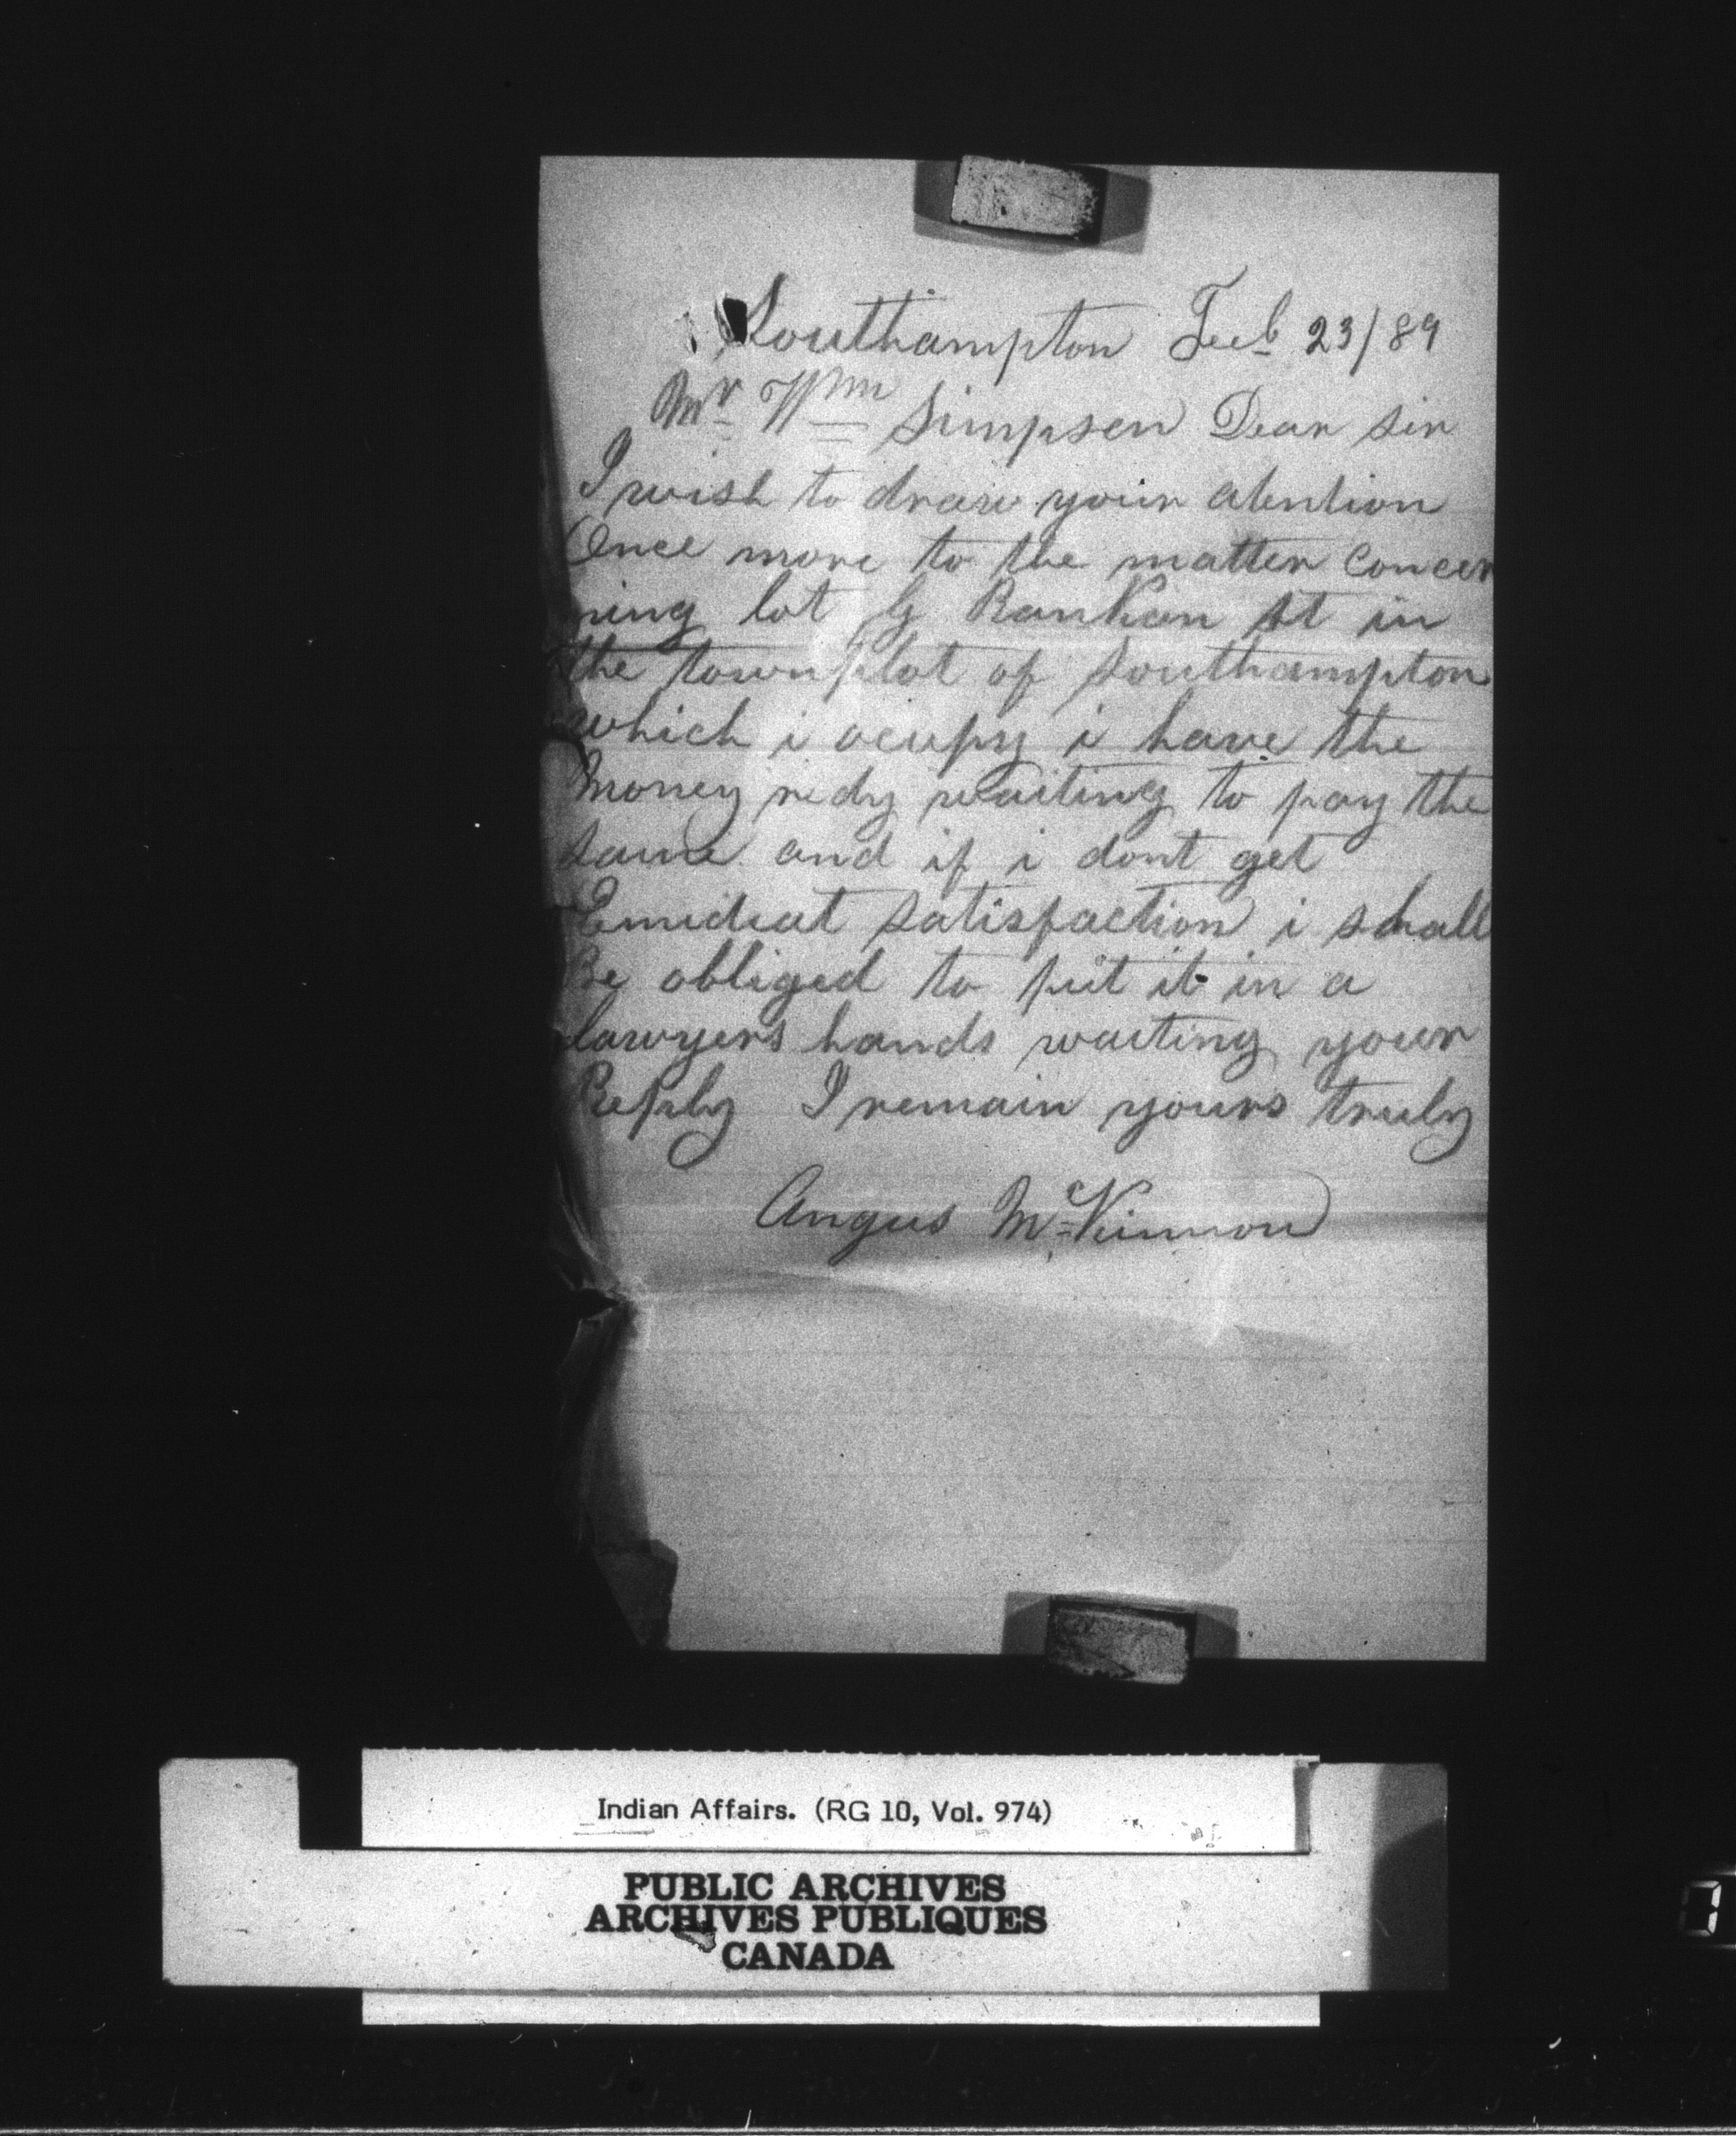 Southampton Feeb 23/89
Mr Wm Simpson Dear sir
I wish to draw your atention
Once more to the matter concer
ning lot G Rankan St in
the town plot of Southampton
which i ocupy i have the
Money redy waiting to pay the
same and if i dont get
Emidiat satisfaction i shall
Be obliged to put it in a
lawyers hands waiting your
Reply I remain yours truly
Angus McKinnon
Indian Affairs. (RG 10, Vol. 974)
PUBLIC ARCHIVES
ARCHIVES PUBLIQUES
CANADA